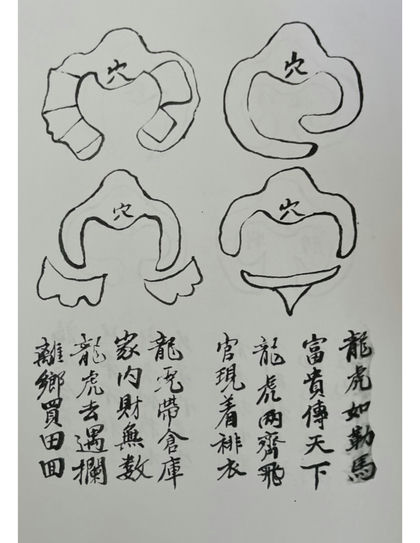 穴
穴
穴
穴
龍虎如勒馬
富貴傳天下
龍虎兩齊飛
官現着裶衣
龍虎帶倉庫
家內財無數
龍虎去遇攔
離鄉買田回